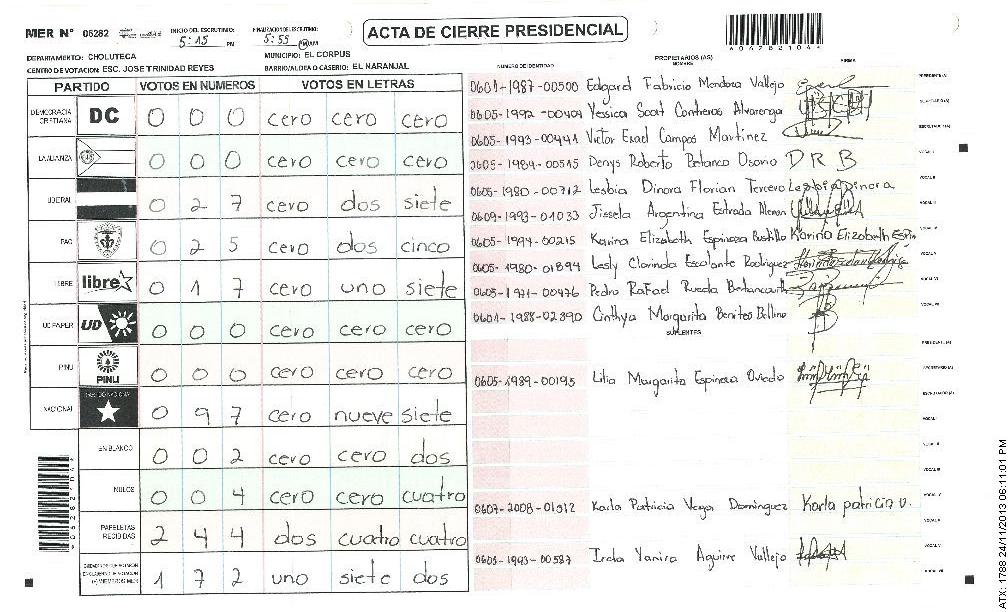 MER N° 05282 INICIO DEL ESCRUTINIO: 5:15 PM FINALIZACION DEL ESCRUTINIO: 5:55 PM AM
ACTA DE CIERRE PRESIDENCIAL
DEPARTAMENTO: CHOLUTECA MUNICIPIO: EL CORPUS
CENTRO DE VOTACION: ESC. JOSE TRINIDAD REYES BARRIO/ALDEA O CASERIO: EL NARANJAL
PARTIDO VOTOS EN NUMEROS VOTOS EN LETRAS
DEMOCRACIA CRISTIANA DC 0 0 0 cero cero cero
LA ALIANZA 0 0 0 cero cero cero
LIBERAL 0 2 7 cero dos siete
PAC 0 2 5 cero dos cinco
LIBRE libre 0 1 7 cero uno siete
UD FAPER UD 0 0 0 cero cero cero
PINU PINU 0 0 0 cero cero cero
NACIONAL PARTIDO NACIONAL 0 9 7 cero nueve siete
EN BLANCO 0 0 2 cero cero dos
NULOS 0 0 4 cero cero cuatro
PAPELETAS RECIBIDAS 2 4 4 dos cuatro cuatro
1 7 2 uno siete dos
NUMERO DE IDENTIDAD PROPIETARIOS (AS) NOMBRE FIRMA
0601-1987-00500 Edgard Fabricio Mendoza Vallejo
0605-1992-00404 Yessica Scat Contreras Alvarenga
0605-1993-00441 Victor Esad Campos Martinez
0605-1984-00515 Denys Roberto Betanco Osorio D R B
0605-1980-00712 Lesbia Dinora Florian Tercero Lesbia Dinora
0609-1993-01033 Jissela Argentina Estrada
0605-1994-00215 Karina Elizabeth Espinoza Bustillo Karina Elizabeth Espin
0605-1980-01894 Lesly Clorinda Escalante Rodriguez
0605-1971-00476 Pedro Rafael Rueda Betancourth
0601-1988-02890 Cinthya Margarita Benites Bellino
SUPLENTES
0605-1989-00195 Lilia Margarita Espinoza Oviedo
0607-2008-01512 Karla Patricia Vega Dominguez Karla patricia v.
0605-1993-00587 Irela Yanira Aguirre Vallejo
ATX: 1788 24/11/2013 06:11:01 PM